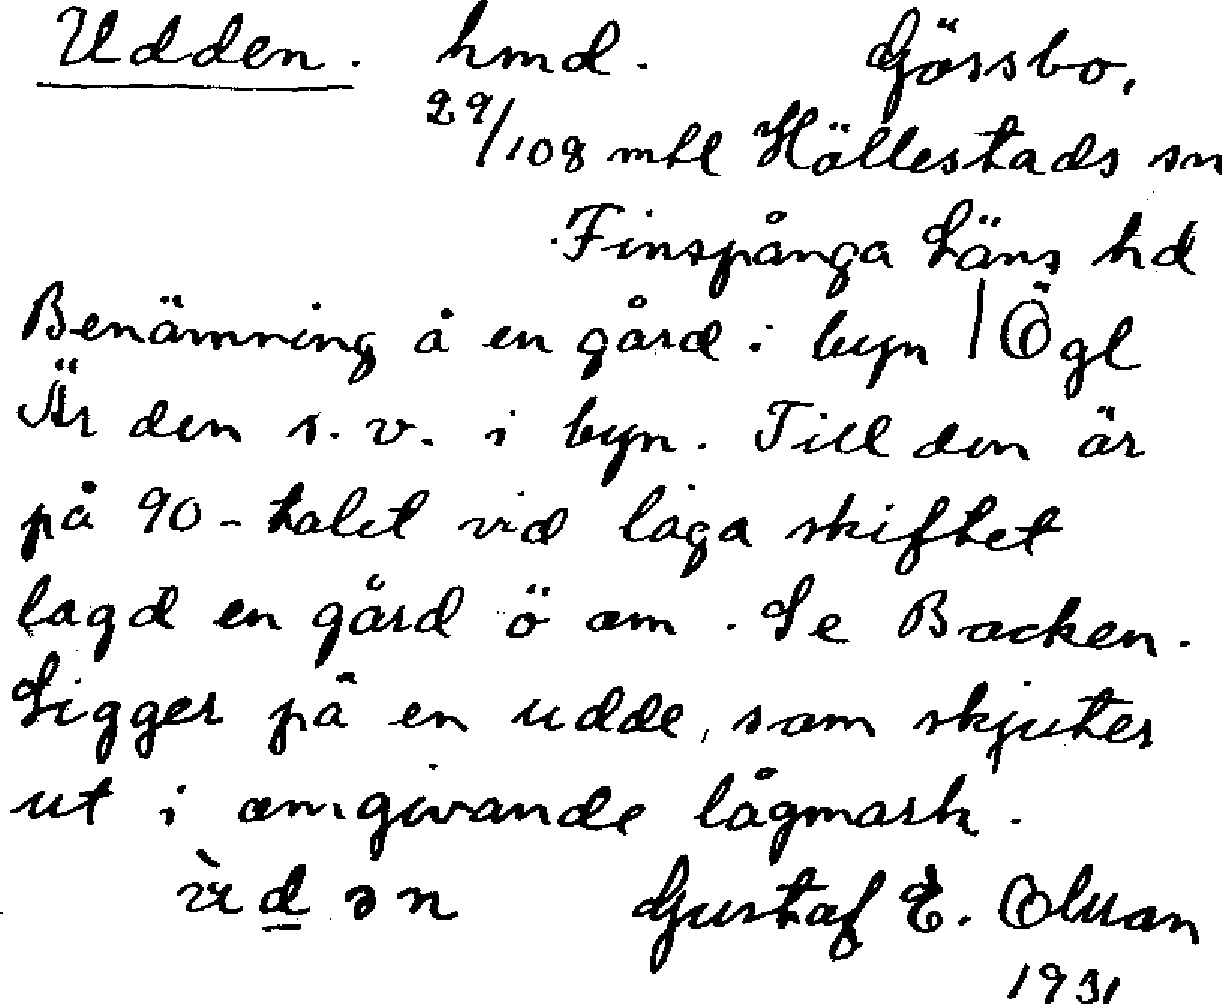 Udden. hmd. Görsbo,
29/108 mtl Hällestads sn
Finspånga Läns hd
Benämning å en gård i byn | Ögl
Är den s.v. i byn. Till den är
på 90-talet vid laga skiftet
lagd en gård ö om. Se Backen.
Ligger på en udde, som skjuter
ut i omgivande lågmark.
Gustaf E. Olman
1931